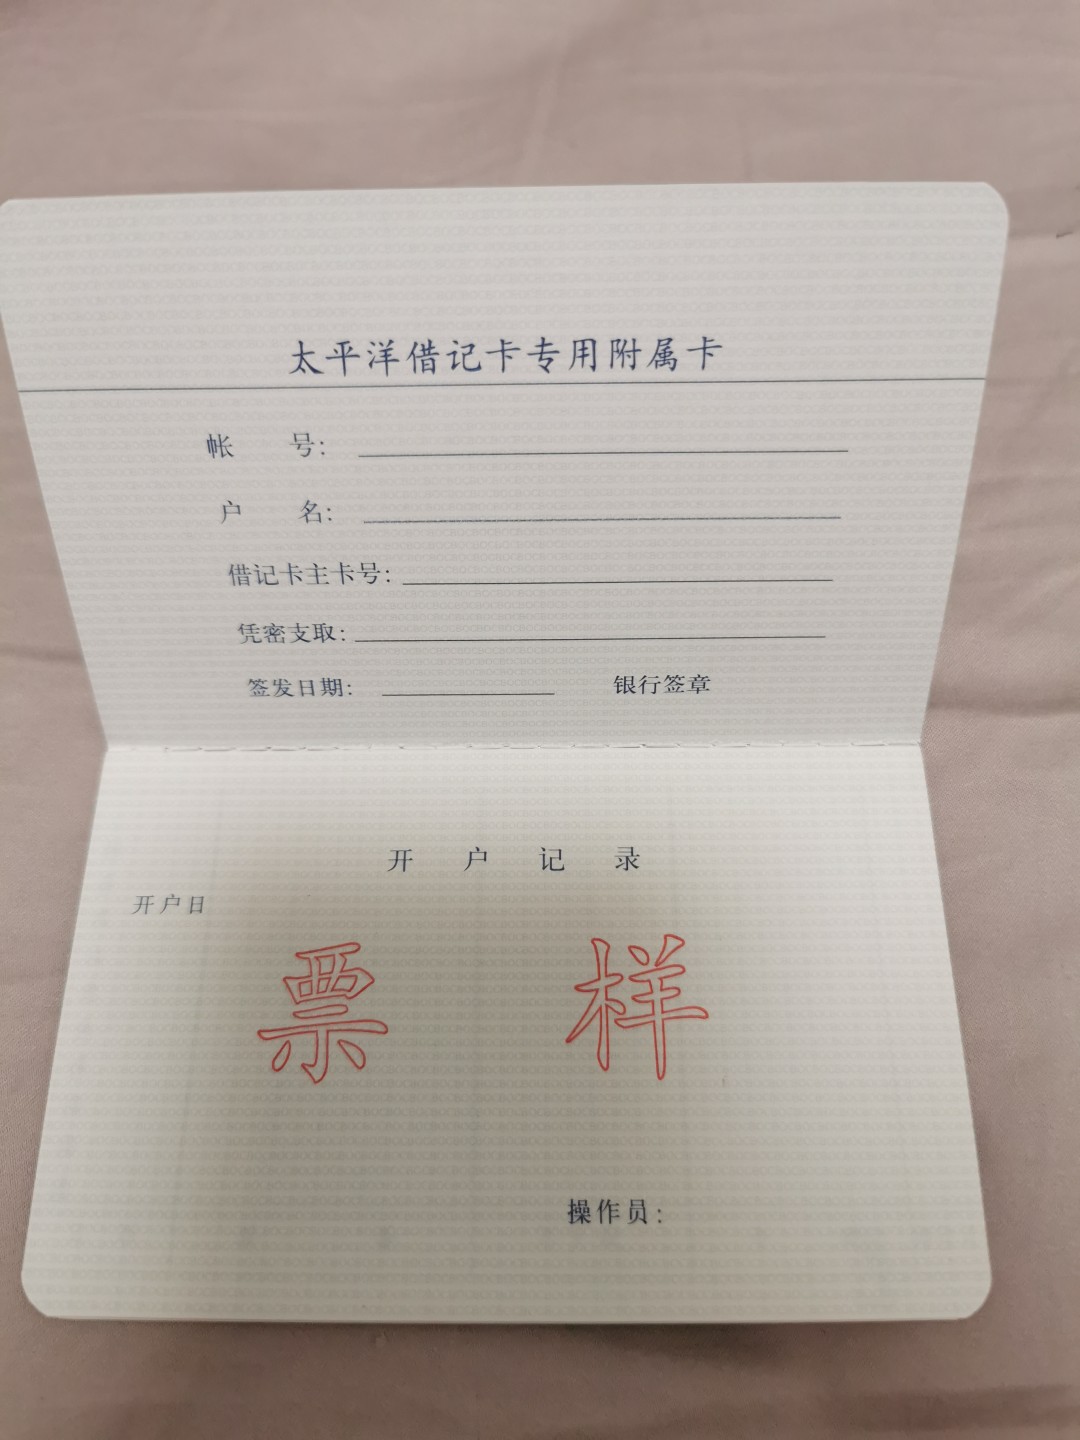 太平洋借记卡专用附属卡
帐 号:
户 名:
借记卡主卡号:
凭密支取:
签发日期: 银行签章
开 户 记 录
开户日
票 样
操作员: